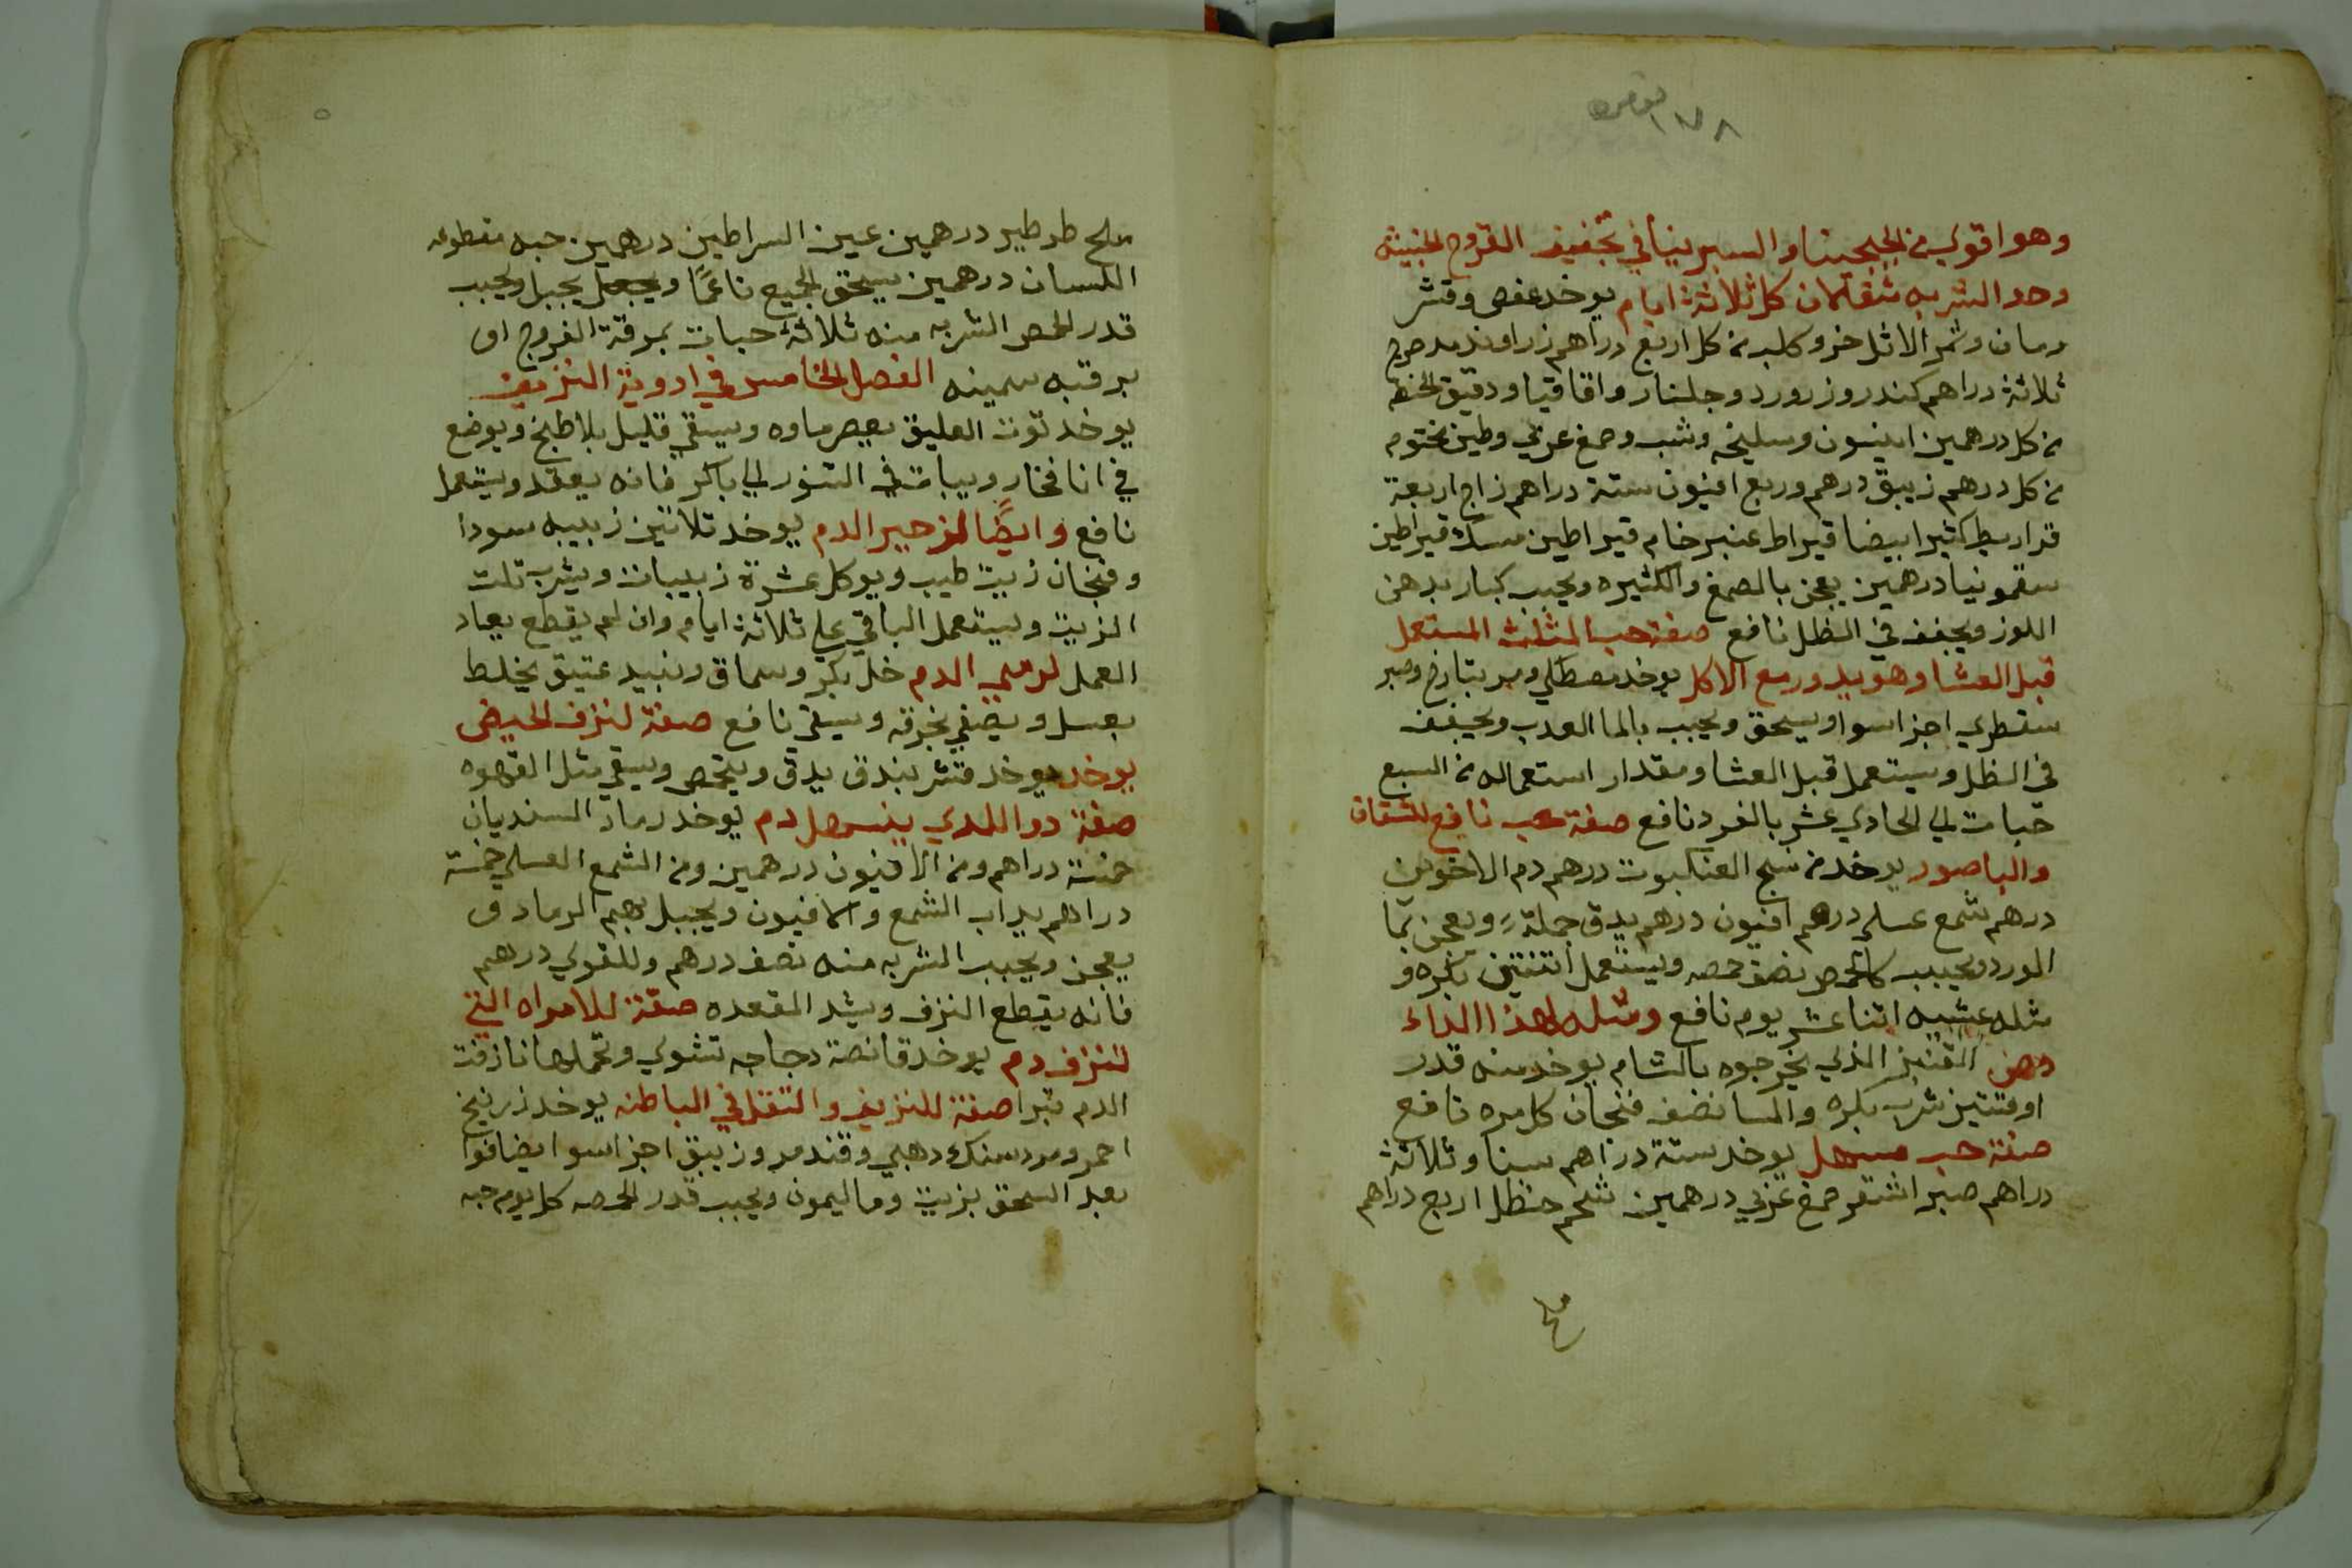 وهو اقوي من الجبجينا والسبرينا في تجفيف القروح الخبيثه
وحد الشربه مثقلان كل ثلاثة ايام يوخد عفص وقشر
رمان وثمر الاثل خرو كلب من كل اربع دراهم زراوند مدحرج
ثلاثة دراهم كندر وزرورد وجلنار واقاقيا ودقيق الحنطه
من كل درهمين انيسون وسليخه وشب وصمغ عربي وطين مختوم
من كل درهم زيبق درهم وربع افيون ستة دراهم زاج اربعة
قراريط كثيرا بيضا قيراط عنبر خام قيراطين مسك قيراطين
سقمونيا درهمين يعجن بالصمغ والكثيره ويحبب كبار بدهن
اللوز ويجفف في الظل نافع صفة حب المثلث المستعمل
قبل العشا وهو يدور مع الاكل يوخد مصطكي ومر بتارخ وصبر
سقطري اجزا سوا ويسحق ويحبب بالما العدب ويجفف
في الظل ويستعمل قبل العشا ومقدار استعماله من السبع
حبات الي الحادي عشر بالفرد نافع صفة حب نافع للشقاق
والباصور يوخد من نسج العنكبوت درهم دم الاخوين
درهم شمع عسلي درهم افيون درهم يدق جملة ويعجن بما
الورد ويحبب كالحمص نصف حمصه ويستعمل اتنتين بكره و
مثله عشيه اثنا عشر يوم نافع ومثله لهذا الداء
دهن القنبز الذي يخرجوه بالشام يوخد منه قدر
اوقتين شرب بكره والمسا نصف فنجان كل مره نافع
صفة حب مسهل يوخد ستة دراهم سنا وثلاثة
دراهم صبر اشقر صمغ عربي درهمين شحم حنظل اربع دراهم
ملح طرطير درهمين عين السراطين درهمين حبه مقطوعه
اللسان درهمين يسحق الجميع ناعمًا ويجعل يجبل ويحبب
قدر الحمص الشربه منه ثلاثة حبات بمرقة الفروج او
برقبه سمينه الفصل الخامس في ادوية النزيف
يوخد توت العليق يعصر ماوه ويسقي قليل بلا طبخ ويوضع
في انا فخار ويبات في التنور الي باكر فانه يعقد ويستعمل
نافع وايضًا لزحير الدم يوخد تلاتين زبيبه سودا
وفنجان زيت طيب ويوكل عشرة زبيبات ويشرب تلت
الزيت ويستعمل الباقي علي ثلاثة ايام وان لم يقطع يعاد
العمل لرمي الدم خل بكر وسماق ونبيد عتيق يخلط
بعسل ويصفي بخرقه ويسقي نافع صفة لنزف الحيض
يوخد يوخد قشر بندق يدق ويتحمص ويسقي مثل القهوه
صفة دوا اللدي ينسهل دم يوخد رماد السنديان
خمسة دراهم ومن الافيون درهمين ومن الشمع العسلي خمسة
دراهم يداب الشمع والافيون ويجبل بهم الرماد و
يعجن ويحبب الشربه منه نصف درهم وللقوي درهم
فانه يقطع النزف ويشد المقعده صفة للامراه التي
تنزف دم يوخد قانصة دجاجه تشوي وتحملها نازفت
الدم تبرا صفة للنزيف والتقل في الباطنه يوخد زرنيخ
احمر ومردسنك دهبي وقندمر وزيبق اجزا سوا يضافوا
بعد السحق بزيت وما ليمون ويحبب قدر الحمصه كل يوم حبه